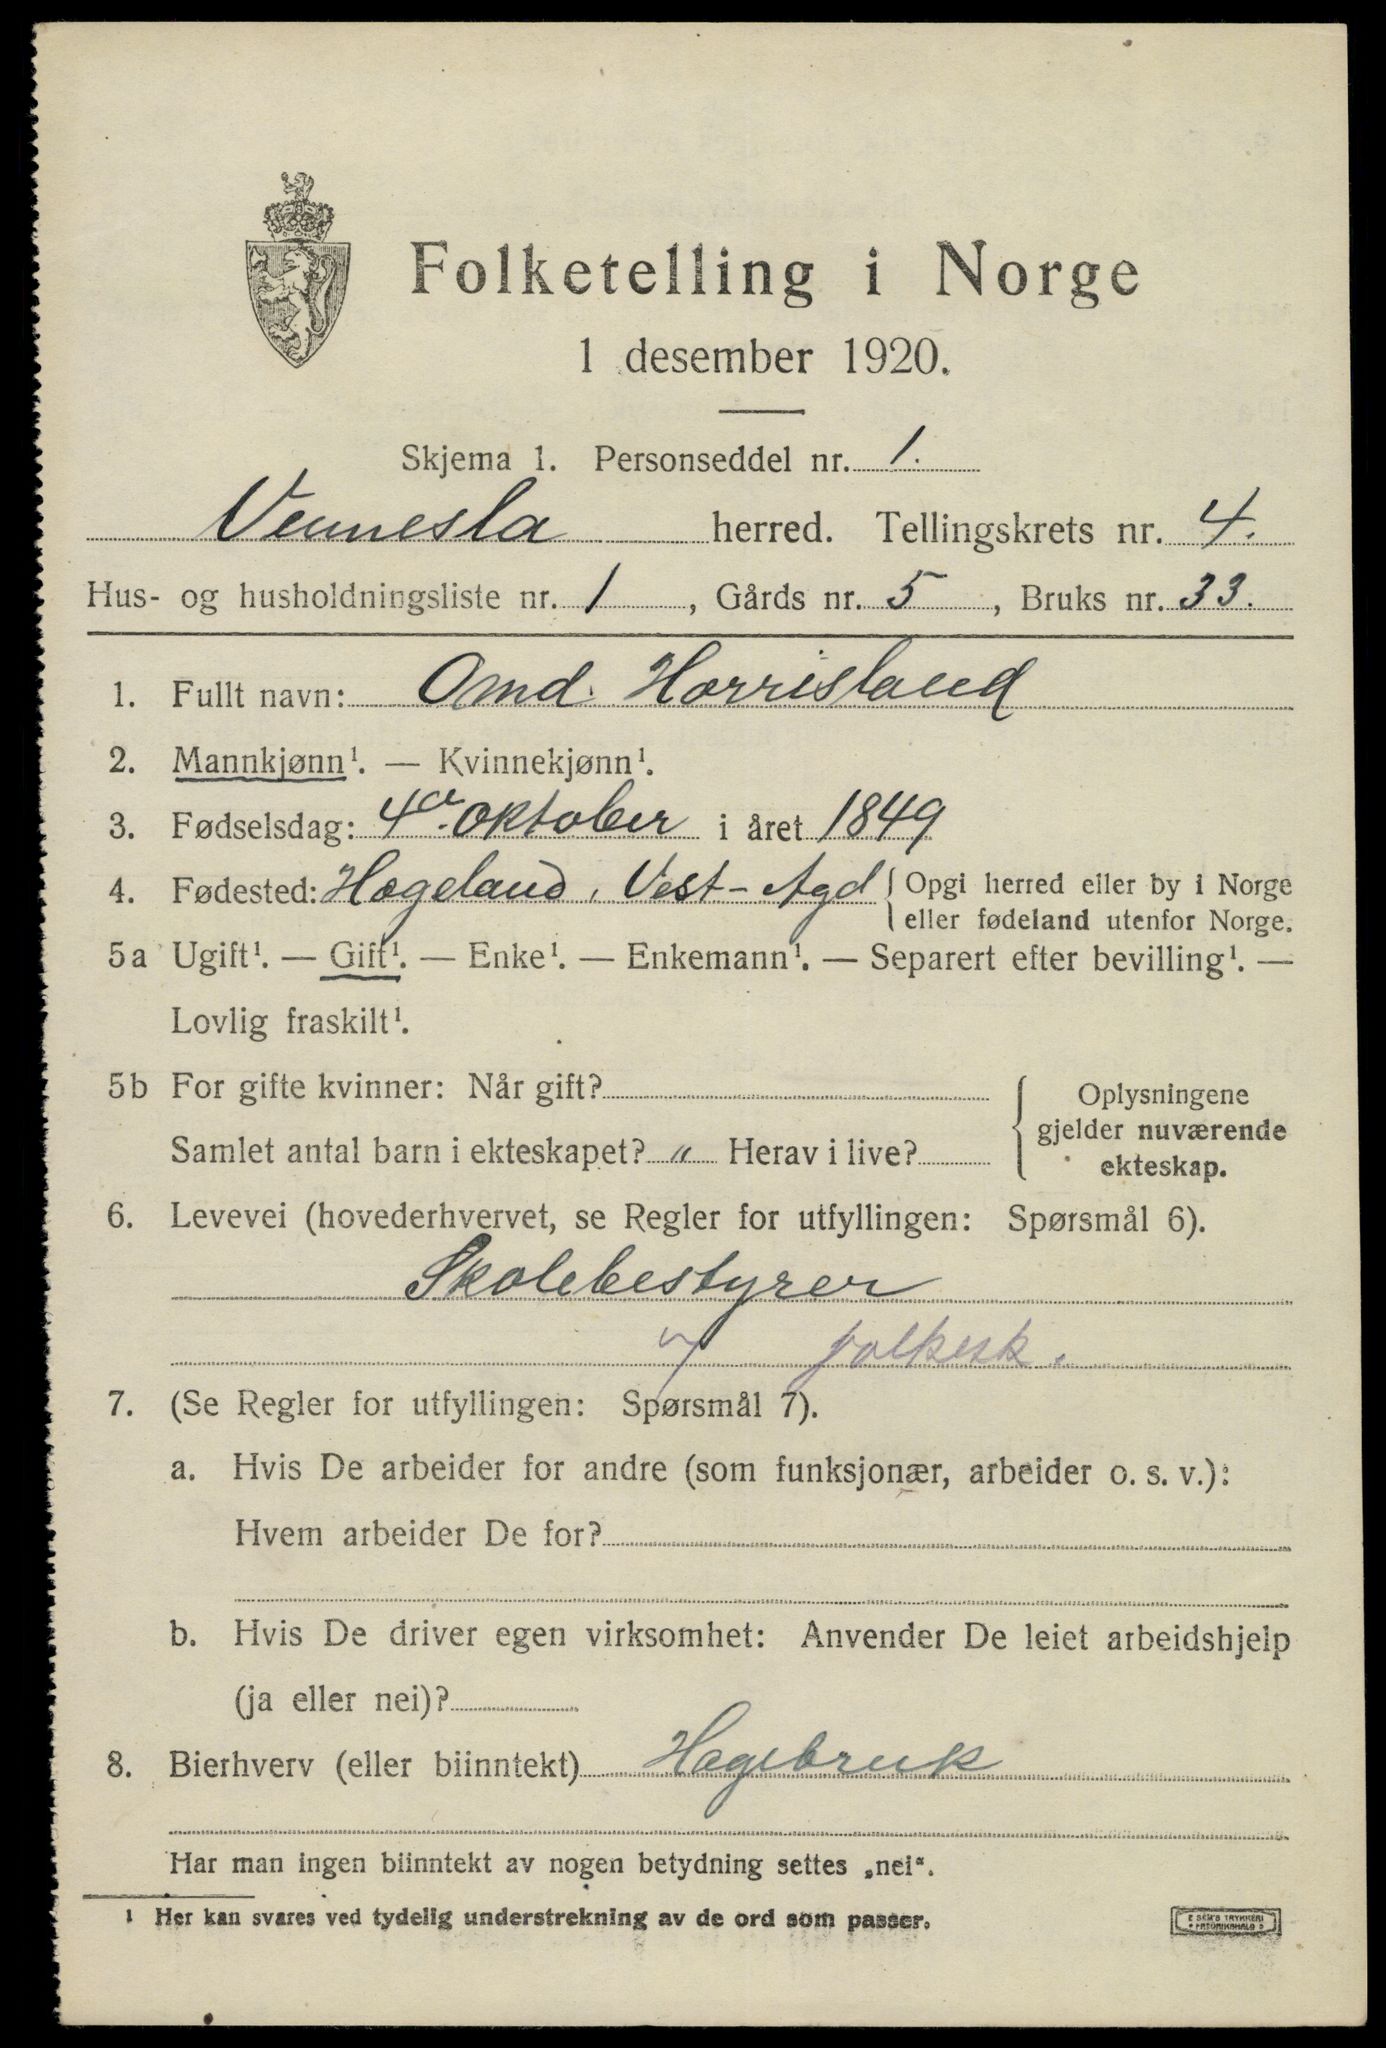 Folketelling i Norge
1 desember 1920.
Skjema 1. Personseddel nr. 1.
Vennesla herred. Tellingskrets nr. 4.
Hus- og husholdningsliste nr. 1, Gårds nr. 5, Bruks nr. 33.
1. Fullt navn: Omd. Horrisland
2. Mannkjønn¹. — Kvinnekjønn¹.
3. Fødselsdag: 4de oktober i året 1849
4. Fødested: Hægeland, Vest-Agd { Opgi herred eller by i Norge
eller fødeland utenfor Norge.
5a Ugift¹. — Gift¹. — Enke¹. — Enkemann¹. — Separert efter bevilling¹. —
Lovlig fraskilt¹.
5b For gifte kvinner: Når gift?
Samlet antal barn i ekteskapet? " Herav i live?
{ Oplysningene
gjelder nuværende
ekteskap.
6. Levevei (hovederhvervet, se Regler for utfyllingen: Spørsmål 6).
Skolebestyrer
v/ folkesk.
7. (Se Regler for utfyllingen: Spørsmål 7).
a. Hvis De arbeider for andre (som funksjonær, arbeider o. s. v.):
Hvem arbeider De for?
b. Hvis De driver egen virksomhet: Anvender De leiet arbeidshjelp
(ja eller nei)?
8. Bierhverv (eller biinntekt) Hagebruk
Har man ingen biinntekt av nogen betydning settes „nei“.
¹ Her kan svares ved tydelig understrekning av de ord som passer.
E SEM'S TRYKKERI
FREDRIKSHALD